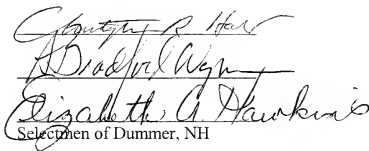 R. Ha
Bradford Wyman
Elizabeth A. Hawkins
Selectmen of Dummer, NH